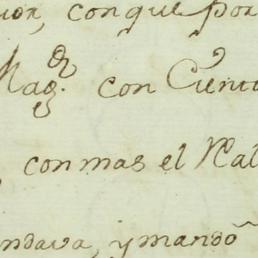 con que por
Mag. con Cient
con mas el Val
ndava, y mandó